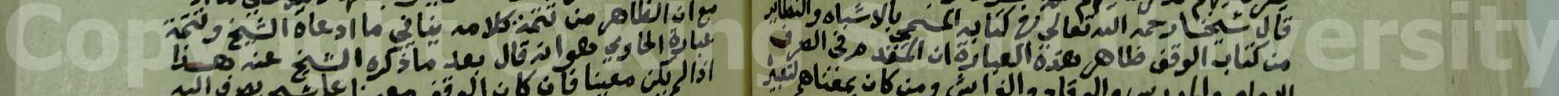 قال شيخنا رحمه الله تعالى في كتابه المسمى بالاشباه والنظائر
من كتاب الوقف ظاهر هذه العبارة ان المقدم في الصرف
الامام والمدرس والوقاد والفراش ومن كان بمعناهم لتعبير
مع ان الظاهر من تتمة كلامه ينافي ما ادعاه الشيخ وتتمة
عبارة الحاوي هو انه قال بعد ما ذكره الشيخ عنه هذا
اذا لم يكن معينا فان كان الوقف معينا على شيء يصرف اليه